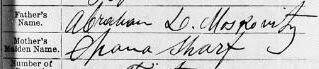 Father's Name. Abraham L. Moskovitz
Mother's Maiden Name. Chana Sharf
Number of